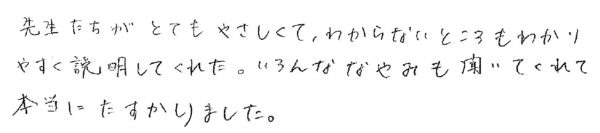 先生たちがとてもやさしくて、わからないところもわかり
やすく説明してくれた。いろんななやみも聞いてくれて
本当にたすかりました。